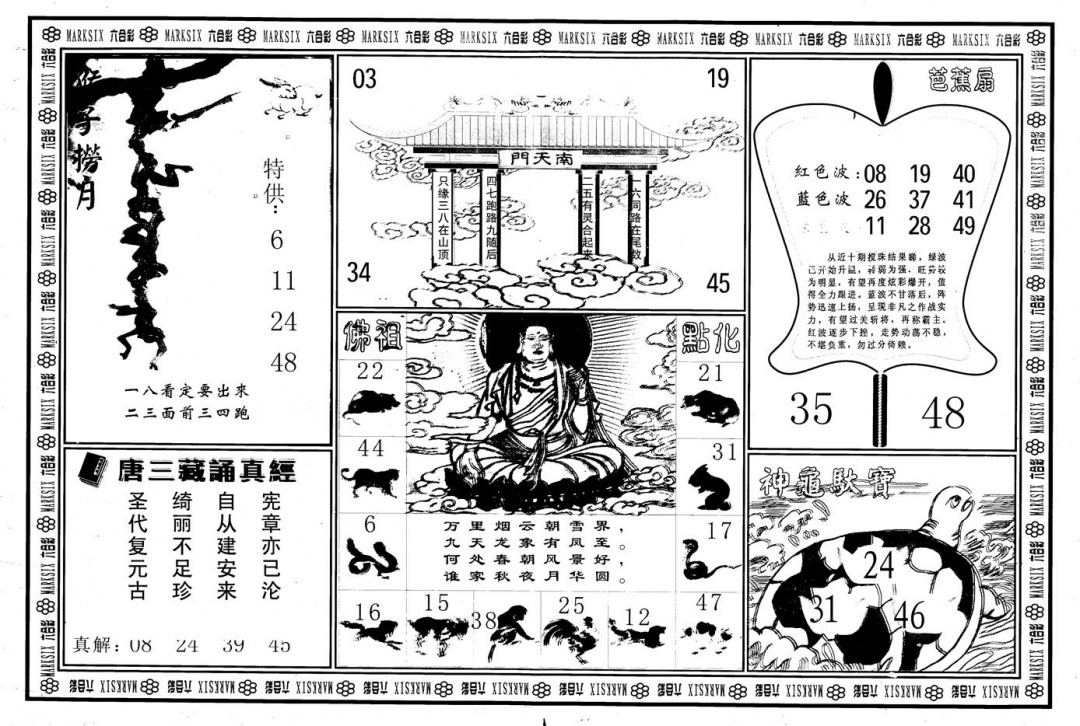 MARKSIX 六合彩 MARKSIX 六合彩 MARKSIX 六合彩 MARKSIX 六合彩 MARKSIX 六合彩 MARKSIX 六合彩 MARKSIX 六合彩 MARKSIX 六合彩 MARKSIX 六合彩 MARKSIX 六合彩
猴子撈月
特供:
6
11
24
48
一八看定要出來
二三面前三四跑
03
19
南天門
一六同路在尾数
二五有灵合起来
四七跑路九随后
只缘三八在山顶
34
45
芭蕉扇
紅色波:08 19 40
藍色波 26 37 41
11 28 49
从近十期搅珠结果睇，绿波
已开始升温，转弱为强，旺势较
为明显，有望再度炫彩爆开，值
得全力跟进。蓝波不甘落后，阵
势迅速上扬，呈现非凡之作战实
力，有望过关斩将，再称霸主。
红波逐步下挫，走势动荡不稳，
不堪负重，勿过分倚赖。
35
48
唐三藏誦真經
宪章亦已沦
自从建安来
绮丽不足珍
圣代复元古
真解: 08 24 39 45
佛祖
點化
22
21
44
31
6
17
万里烟云朝雪界，
九天龙象有凤至。
何处春朝风景好，
谁家秋夜月华圆。
16
15
38
25
12
47
神龜馱寶
24
31
46